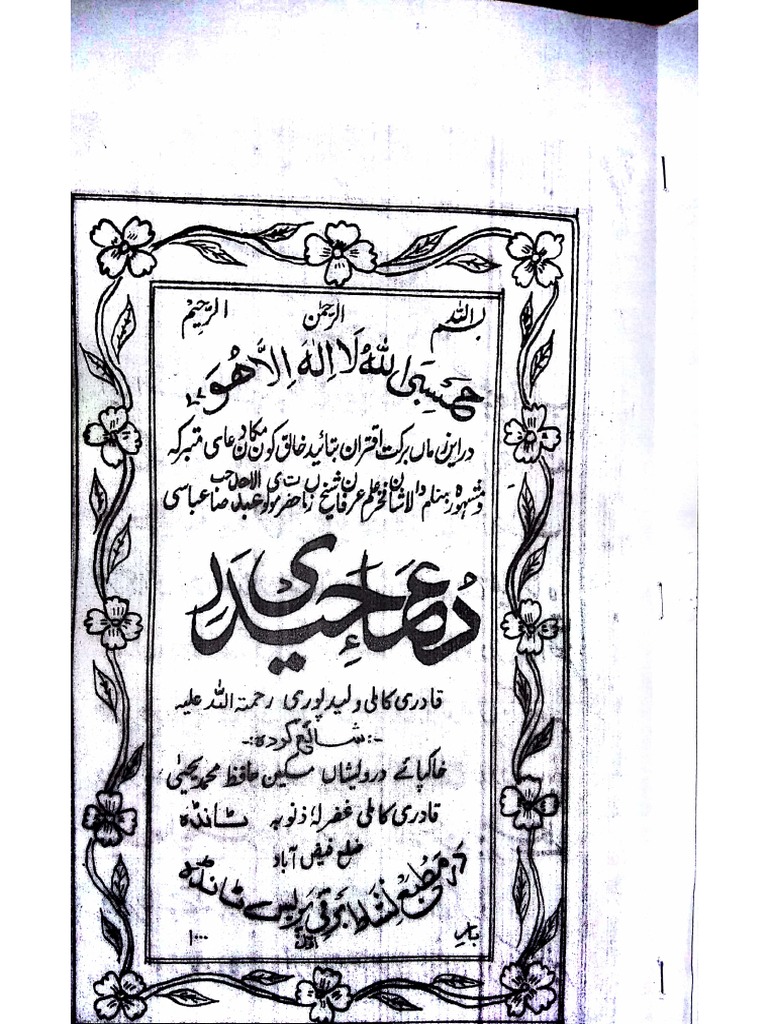 بسم اللہ الرحمٰن الرحیم
حَسْبِیَ اللّٰهُ لَا اِلٰهَ اِلَّا هُوَ
در ایں زماں برکت اقتران بتائید خالق کون و مکاں دعای متبرکہ
و مشہورہ بنام والا شان فخر علم عرفان شیخ زماں حضرت مولوی عبد الاحد صاحب عباسی
دُعَاءِ حیدری
قادری کاملی ولیدپوری رحمتہ اللہ علیہ
-: شائع کردہ :-
خاکپائے درویشاں مسکین حافظ محمد یحییٰ
قادری کاملی غفرلہٗ ذنوبہ ٹانڈہ
ضلع فیض آباد
در مطبع نشاط برقی پریس ٹانڈہ
بار اول ۱۰۰۰